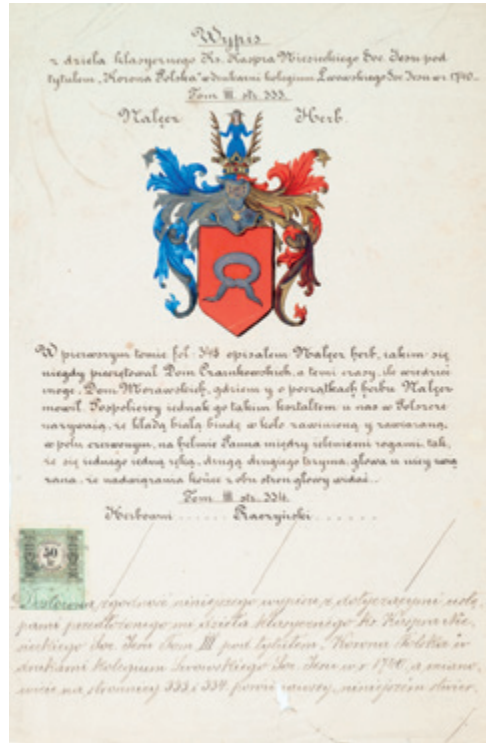 Wypis
z dzieła klasycznego Ks. Kaspra Niesieckiego Soc. Jesu pod
tytułem „Korona Polska" w drukarni kolegium Lwowskiego Soc. Jesu w r. 1740.
Tom III. str. 333.
Nałęcz Herb.
W pierwszym tomie fol. opisałem Nałęcz herb, iakim się
niegdy pieczętował Dom Czarnkowskich, a temi czasy, ile wiedzieć
mogę, Dom Morawskich, gdziem y o początkach herbu Nałęcz
mowił. Pospoliciey iednak go takim kształtem u nas w Polszcze
zażywaią, że kładą białą bindę w koło zawinioną y zawiązaną,
w polu czerwonym, na hełmie Panna między ieleniemi rogami, tak,
że się iednego iedną ręką, drugą drugiego trzyma, głowa u niey zwią
zana, że nadwiązania końce z obu stron głowy widać.
Tom III str. 334.
Herbowni ...... Raczyński ......
50
zgodność niniejszego wypisu z dotyczącymi ustę-
pami przedłożonego mi dzieła klasycznego Ks. Kaspra Nie-
sieckiego Soc. Jesu Tom III pod tytułem „Korona Polska w
drukarni Kolegium Lwowskiego Soc. Jesu w r. 1740, a miano-
wicie na stronnicy 333 i 334 niniejszem stwier-